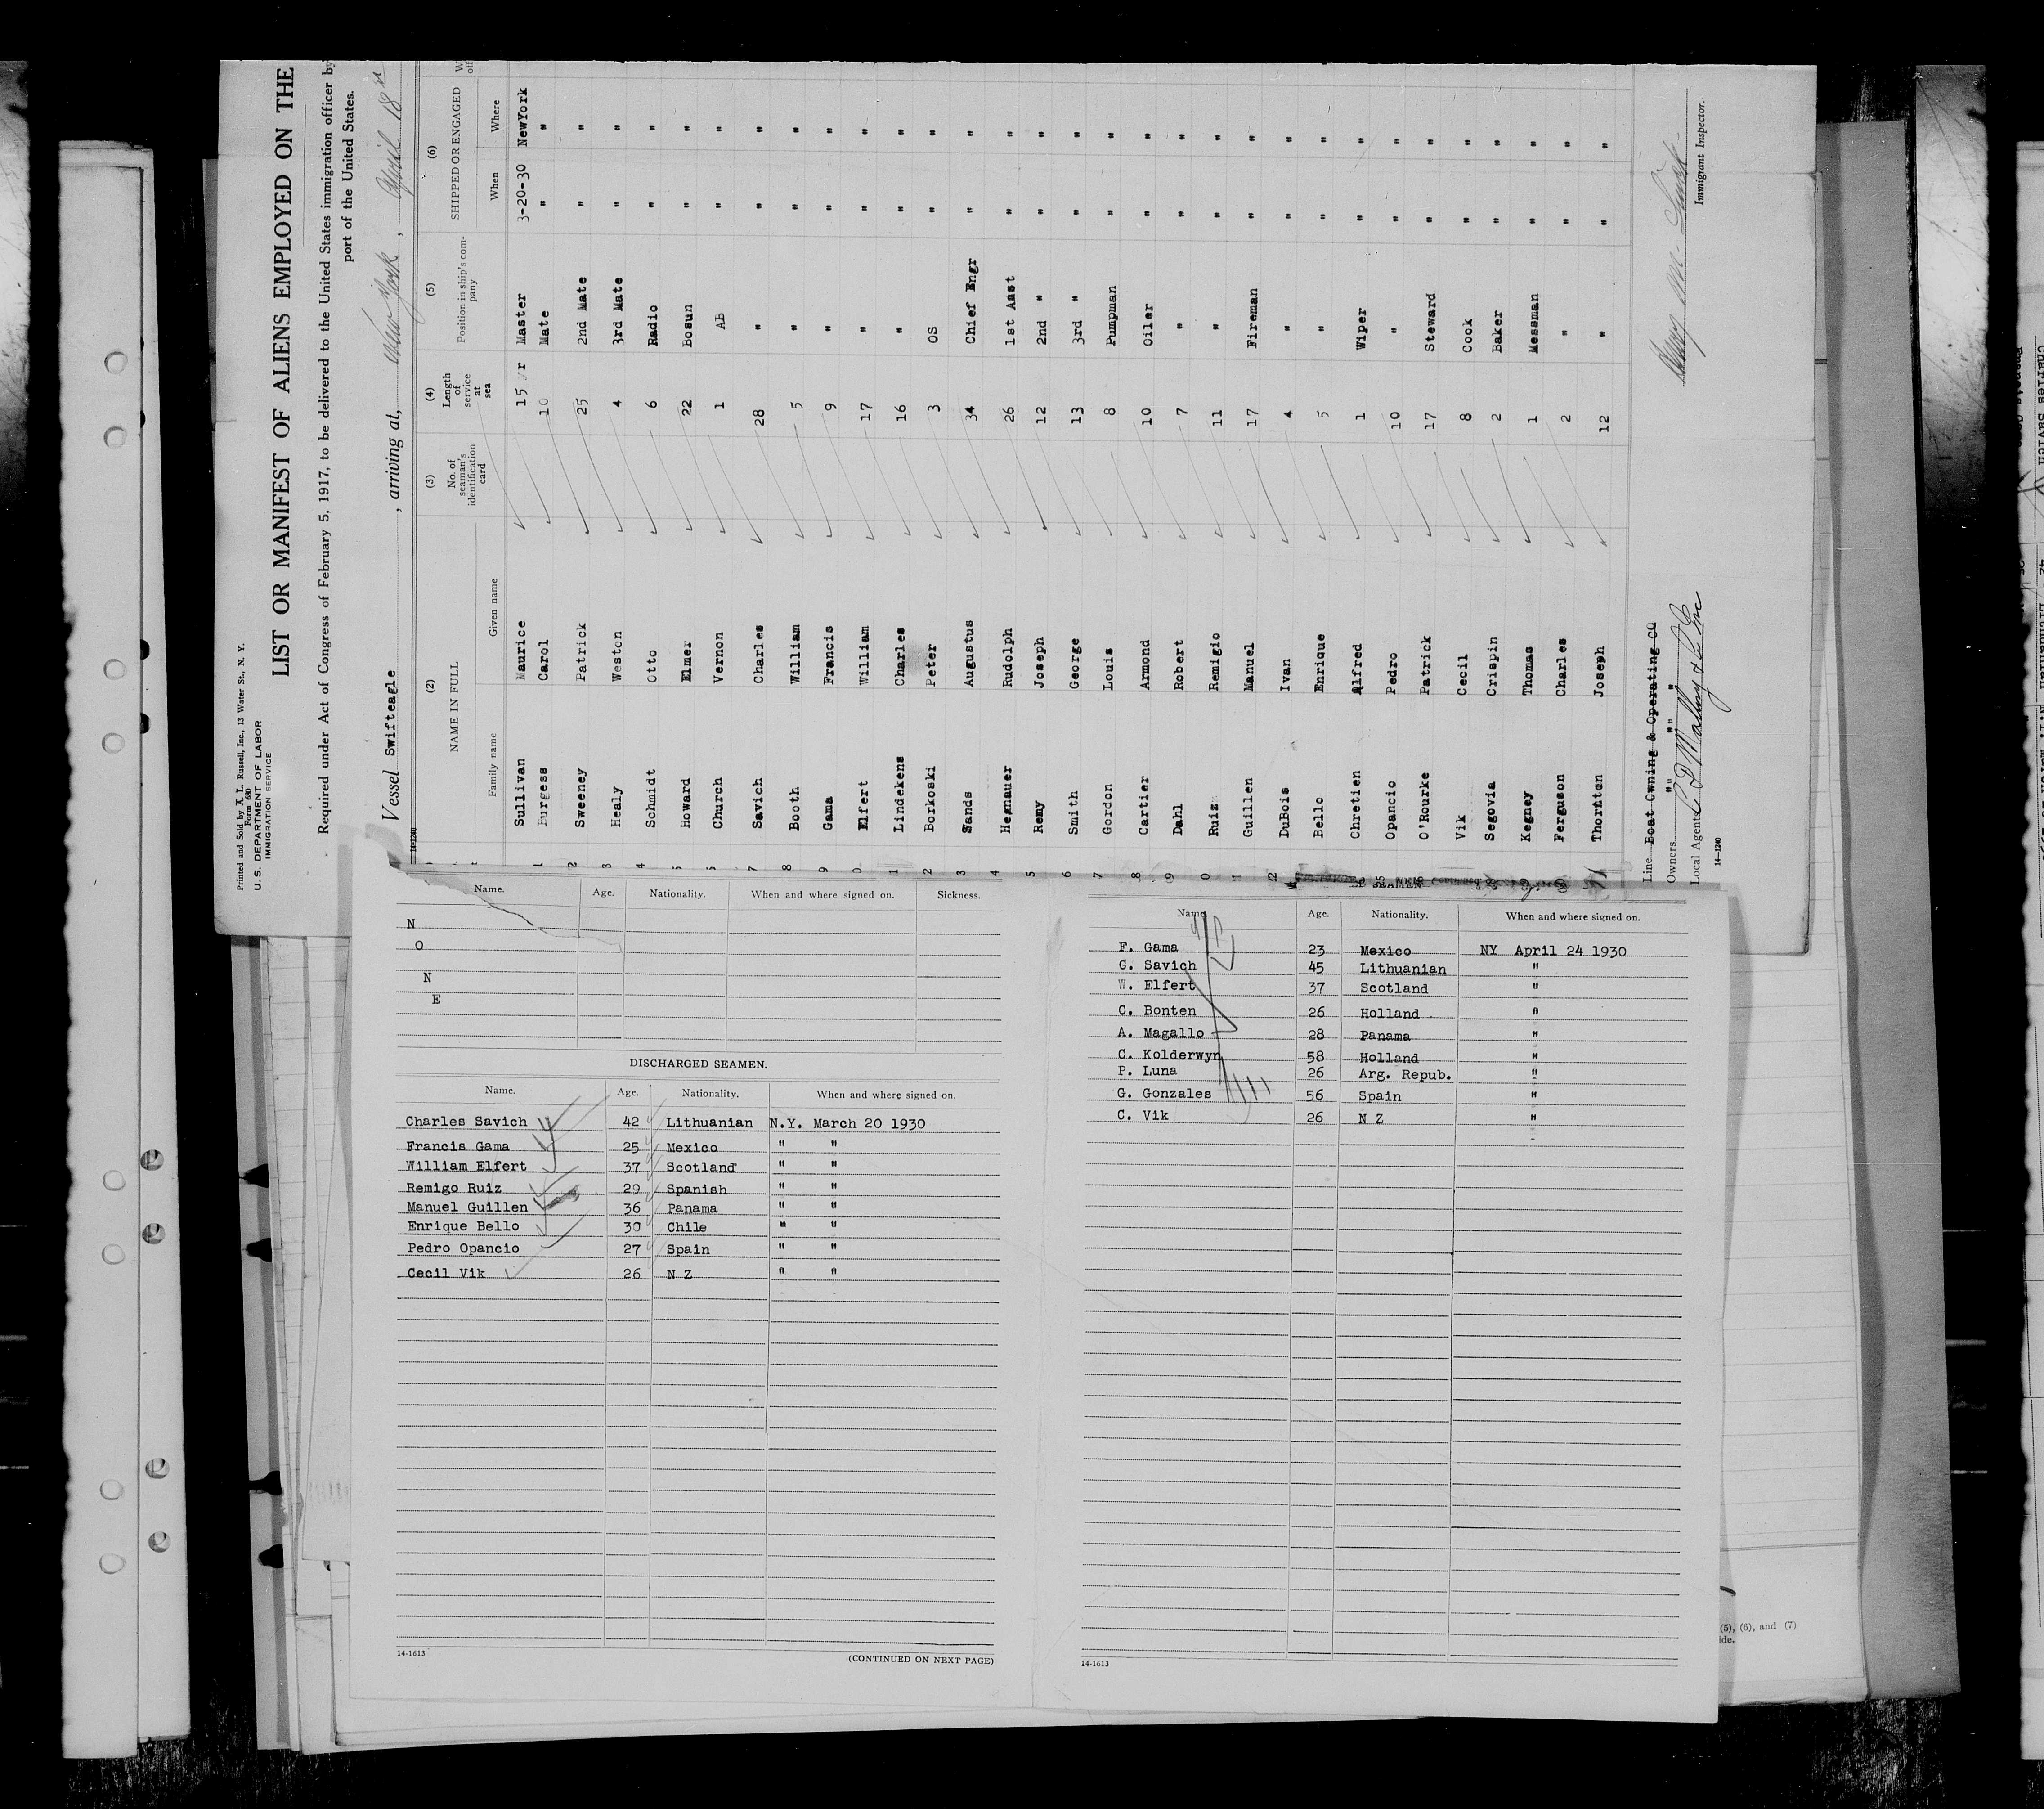 Printed and Sold by A. L. Russell, Inc., 13 Water St., N. Y.
Form 680
U. S. DEPARTMENT OF LABOR
IMMIGRATION SERVICE
LIST OR MANIFEST OF ALIENS EMPLOYED ON THE
Required under Act of Congress of February 5, 1917, to be delivered to the United States immigration officer by
port of the United States.
Vessel Swifteagle , arriving at, New York , April 18
14-1240
(2) (3) (4) (5) (6)
NAME IN FULL No. of seaman's identification card Length of service at sea Position in ship's company SHIPPED OR ENGAGED
Family name Given name When Where
Sullivan Maurice 15 yr Master 3-20-30 NewYork
1 Burgess Carol 10 Mate " "
2 Sweeney Patrick 25 2nd Mate " "
3 Healy Weston 4 3rd Mate " "
4 Schmidt Otto 6 Radio " "
5 Howard Elmer 22 Bosun " "
6 Church Vernon 1 AB " "
7 Savich Charles 28 " " "
8 Booth William 5 " " "
9 Gama Francis 9 " " "
0 Elfert William 17 " " "
1 Lindekens Charles 16 " " "
2 Borkoski Peter 3 OS " "
3 Sands Augustus 34 Chief Engr " "
4 Hegnauer Rudolph 26 1st Asst " "
5 Remy Joseph 12 2nd " " "
6 Smith George 13 3rd " " "
7 Gordon Louis 8 Pumpman " "
8 Cartier Armond 10 Oiler " "
9 Dahl Robert 7 " " "
0 Ruiz Remigio 11 " " "
1 Guillen Manuel 17 Fireman " "
2 DuBois Ivan 4 " " "
Bello Enrique 5 " " "
Chretien Alfred 1 Wiper " "
Opancio Pedro 10 " " "
O'Rourke Patrick 17 Steward " "
Vik Cecil 8 Cook " "
Segovia Crispin 2 Baker " "
Kegney Thomas 1 Messman " "
Ferguson Charles 2 " " "
Thornton Joseph 12 " " "
Line Boat Owning & Operating CO
Owners " " "
Local Agents C D Mallory & Co Inc
Immigrant Inspector.
14-1240
Name. Age. Nationality. When and where signed on. Sickness.
N
O
N
E
DISCHARGED SEAMEN.
Name. Age. Nationality. When and where signed on.
Charles Savich 42 Lithuanian N.Y. March 20 1930
Francis Gama 25 Mexico " "
William Elfert 37 Scotland " "
Remigo Ruiz 29 Spanish " "
Manuel Guillen 36 Panama " "
Enrique Bello 30 Chile " "
Pedro Opancio 27 Spain " "
Cecil Vik 26 N Z " "
14-1613
(CONTINUED ON NEXT PAGE)
Name. Age. Nationality. When and where signed on.
F. Gama 23 Mexico NY April 24 1930
C. Savich 45 Lithuanian "
W. Elfert 37 Scotland "
C. Bonten 26 Holland "
A. Magallo 28 Panama "
C. Kolderwyn 58 Holland "
P. Luna 26 Arg. Repub. "
G. Gonzales 56 Spain "
C. Vik 26 N Z "
14-1613
(5), (6), and (7)
ide.